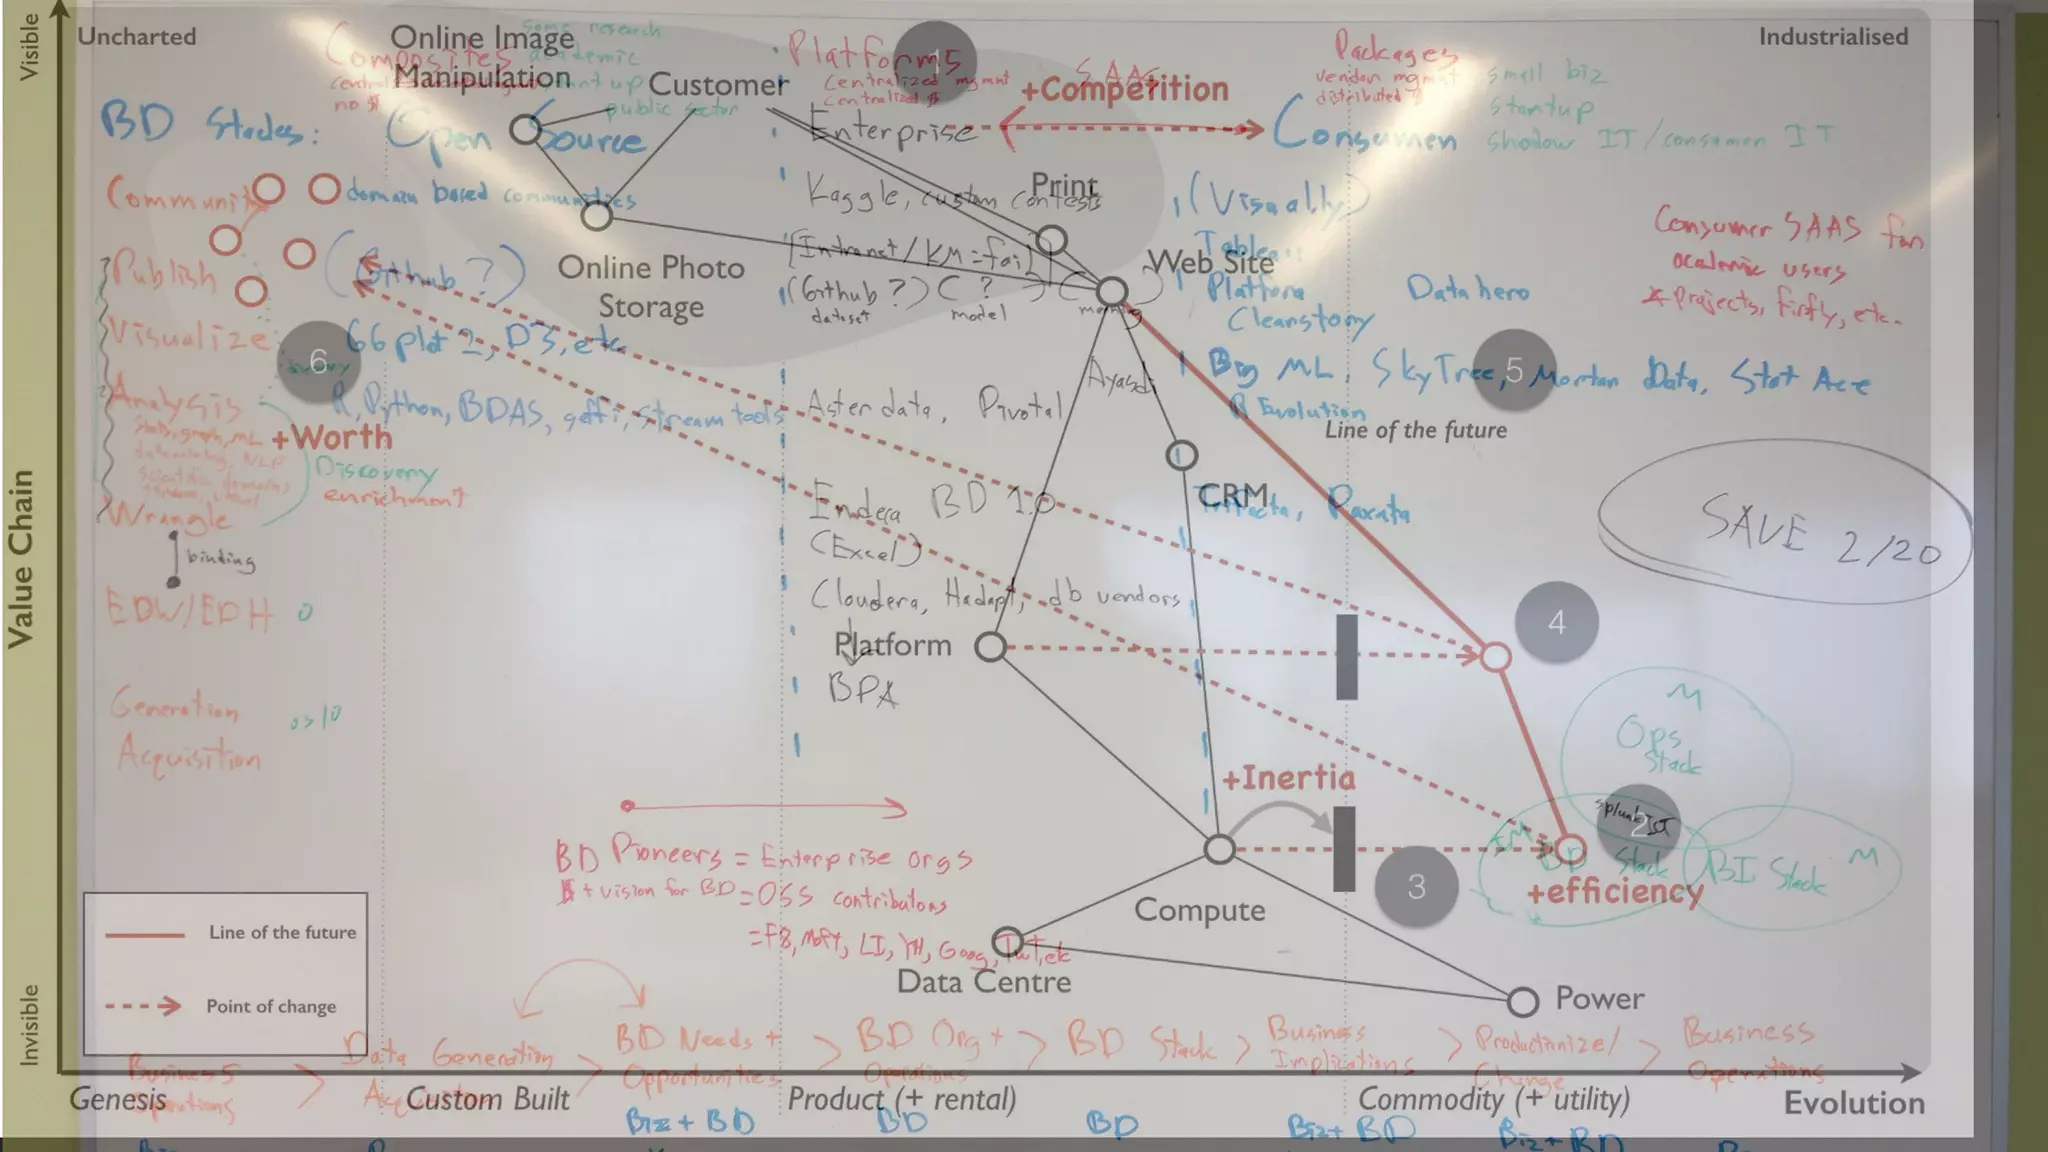 Visible
Uncharted
Industrialised
Online Image
Manipulation
Customer
Composites
some research
academic
public sector
no $
Platforms
centralized mgmnt
centralized $
SAAS
+Competition
1
Packages
vendor mgmnt
distributed $
small biz
startup
shadow IT/consumer IT
BD Stacks:
Open Source
Enterprise
Consumer
Community
domain based communities
Kaggle, custom contests
Print
(Visually)
Consumer SAAS for
academic users
projects, firfly, etc.
Publish
(Github?)
Online Photo
Storage
[Intranet/KM=fail]
(Github?) ( ? )
dataset
model
Web Site
Platfora
Clearstory
Datahero
Visualize
6
D3, etc.
Ayasdi
Big ML, SkyTree, Mortar Data, Stat Ace
5
R Evolution
Line of the future
Analysis
R, Python, BDAS, geffi, stream tools
Aster data, Pivotal
stats, graph, ML
+Worth
Discovery
enrichment
Wrangle
binding
Endeca BD 1.0
(Excel)
CRM
Trifacta, Paxata
SAVE 2/20
Value Chain
EDW/EDH
Cloudera, Hadapt, db vendors
Platform
BPA
4
Generation
Acquisition
Ops
Stack
M
+Inertia
splunk
2
BD Stack
BI Stack
M
+efficiency
3
BD Pioneers = Enterprise orgs
$ + vision for BD = OSS contributors
= FB, MSFT, LI, YH, Goog, Twt, etc
Compute
Data Centre
Power
Line of the future
Point of change
Invisible
Business
Operations
>
Data Generation
>
BD Needs +
Opportunities
>
BD Org +
Operations
>
BD Stack
>
Business
Implications
>
Productionize/
Change
>
Business
Operations
Genesis
Custom Built
Product (+ rental)
Commodity (+ utility)
Evolution
Biz + BD
BD
BD
Biz + BD
Biz + BD